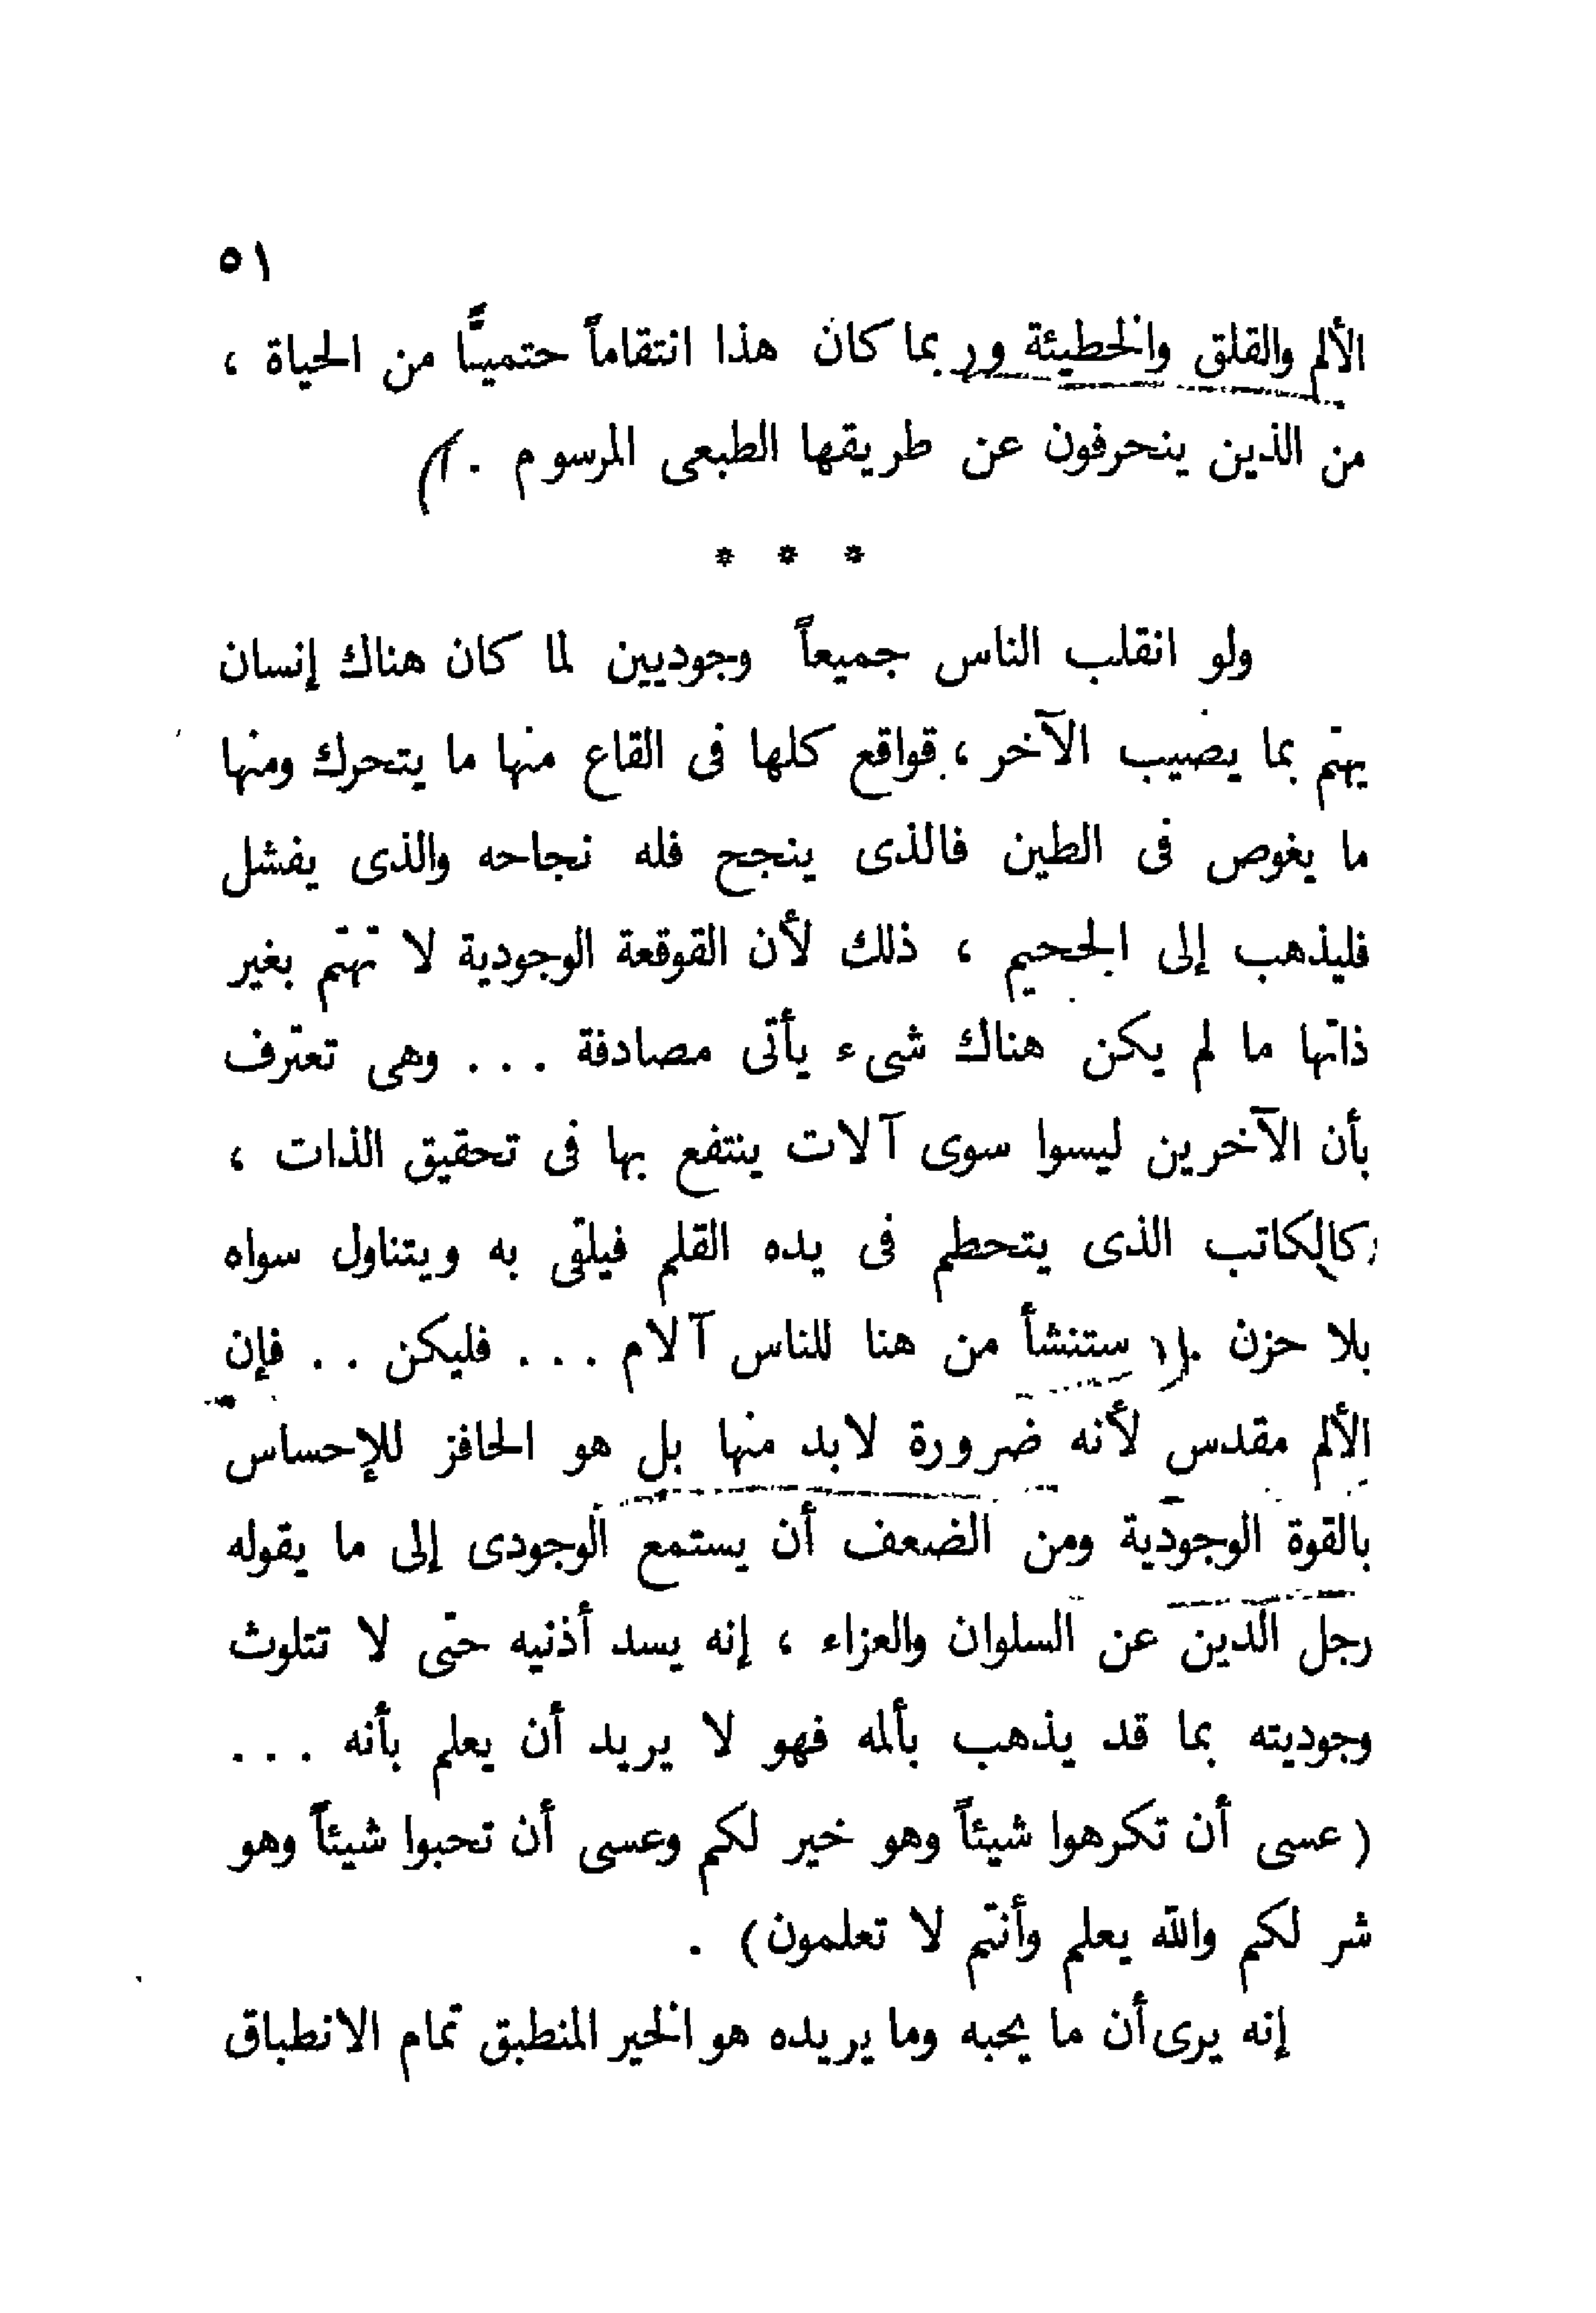 ٥١
الألم والقلق والخطيئة وربما كان هذا انتقاماً حتميًّا من الحياة ،
من الذين ينحرفون عن طريقها الطبعى المرسوم .
* * *
ولو انقلب الناس جميعاً وجوديين لما كان هناك إنسان
يهتم بما يصيب الآخر ، قواقع كلها فى القاع منها ما يتحرك ومنها
ما يغوص فى الطين فالذى ينجح فله نجاحه والذى يفشل
فليذهب إلى الجحيم ، ذلك لأن القوقعة الوجودية لا تهتم بغير
ذاتها ما لم يكن هناك شىء يأتى مصادفة ... وهى تعترف
بأن الآخرين ليسوا سوى آلات ينتفع بها فى تحقيق الذات ،
كالكاتب الذى يتحطم فى يده القلم فيلقى به ويتناول سواه
بلا حزن . ستنشأ من هنا للناس آلام ... فليكن .. فإن
الألم مقدس لأنه ضرورة لابد منها بل هو الحافز للإحساس
بالقوة الوجودية ومن الضعف أن يستمع الوجودى إلى ما يقوله
رجل الدين عن السلوان والعزاء ، إنه يسد أذنيه حتى لا تتلوث
وجوديته بما قد يذهب بألمه فهو لا يريد أن يعلم بأنه ...
(عسى أن تكرهوا شيئاً وهو خير لكم وعسى أن تحبوا شيئاً وهو
شر لكم والله يعلم وأنتم لا تعلمون) .
إنه يرى أن ما يحبه وما يريده هو الخير المنطبق تمام الانطباق